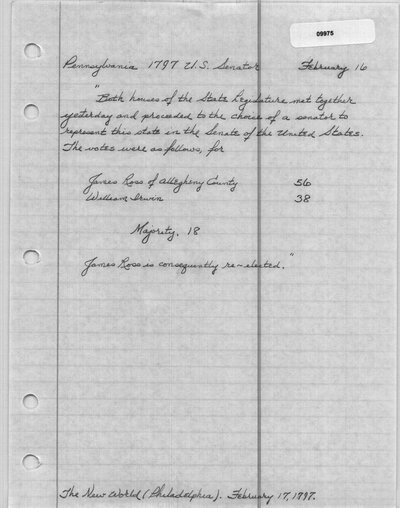 09975
Pennsylvania 1797 U.S. Senator February 16
"Both houses of the State Legislature met together
yesterday and proceeded to the choice of a senator to
represent this state in the Senate of the United States.
The votes were as follows, for
James Ross of Allegheny County 56
William Irwin 38
Majority, 18
James Ross is consequently re-elected."
The New World (Philadelphia). February 17, 1797.